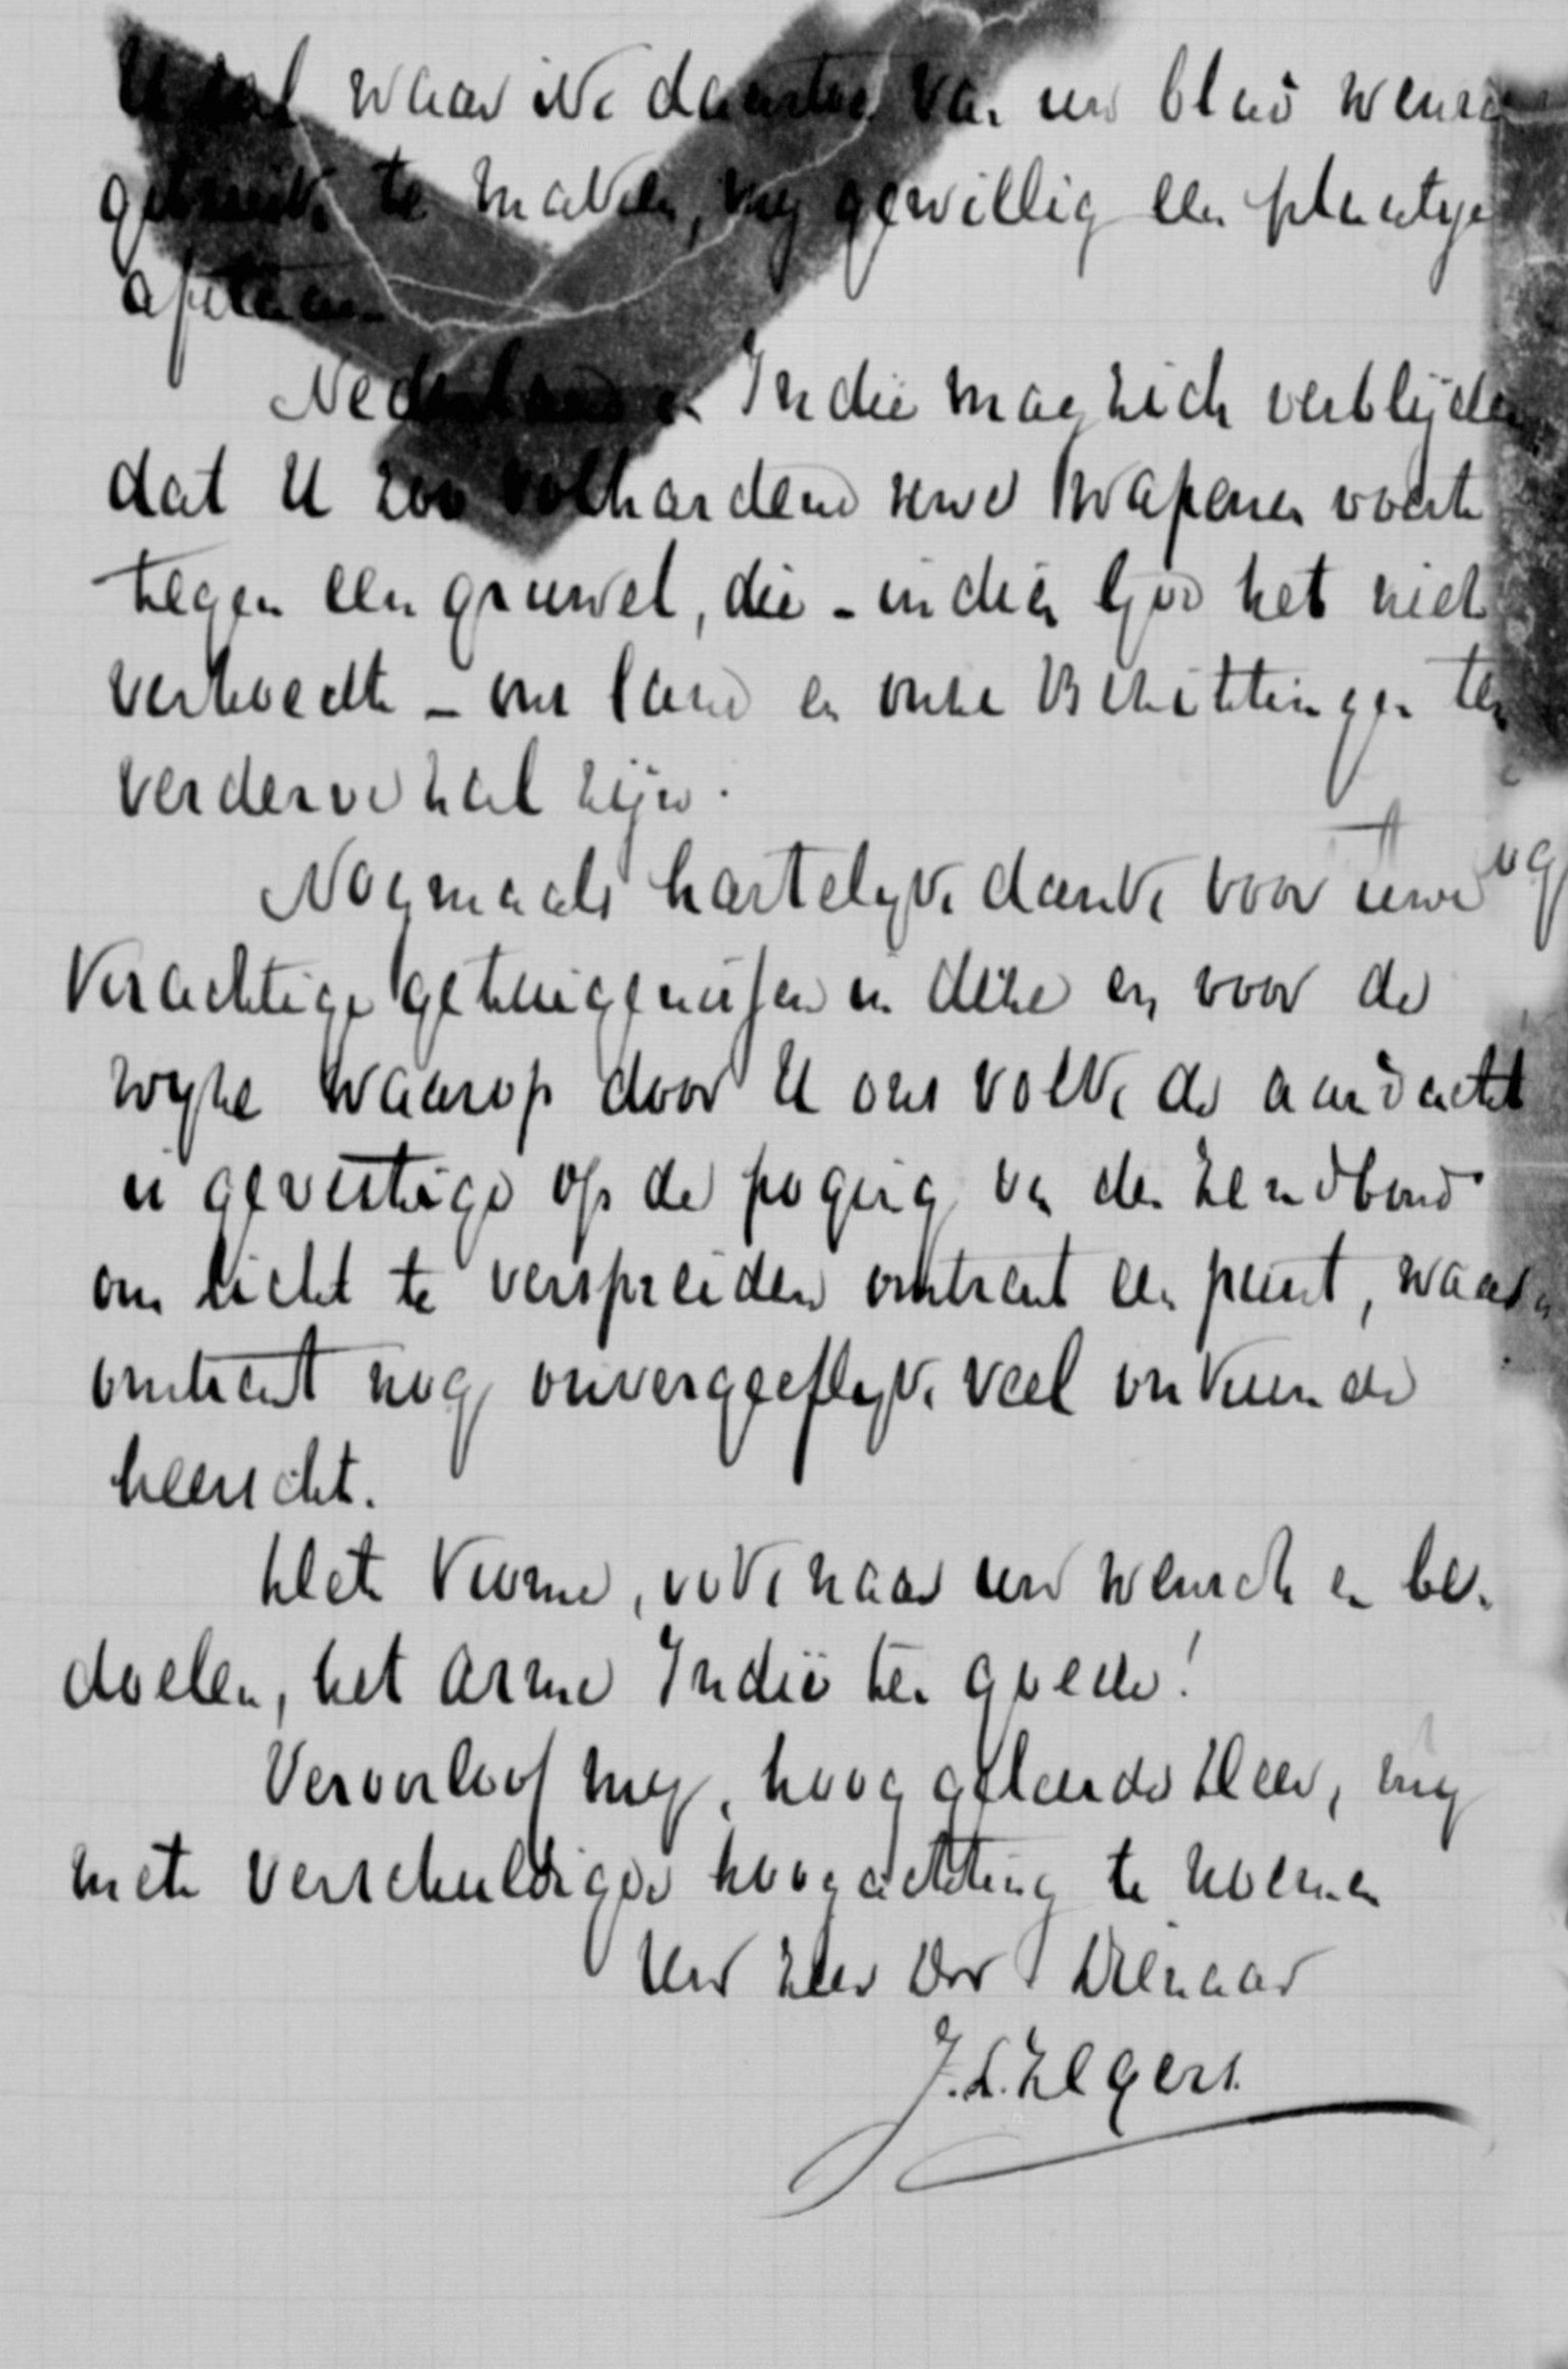 U zal waar ik daartoe van uw blad wensch
gebruik te maken, my gewillig een plaatsje
afstaan.
Nederland en Indië mag zich verblijden
dat U zoo volhardend uwe wapenen voert
tegen een gruwel, die - indien God het niet
verhoedt - ons land en onze Bezittingen ten
verderve zal zijn.
Nogmaals hartelyk dank voor uwe
krachtige getuigenissen in deze en voor de
wyze waarop door U ons volk de aandacht
is gevestigd op de poging van den Zendbond
om licht te verspreiden omtrent een punt, waar
omtrent nog onvergeeflyk veel onkunde
heerscht.
Het kome, ook naar uw wensch en be-
doelen, het arme Indië ten goede!
Veroorloof my, hooggeleerde Heer, my
met verschuldigde hoogachting te noemen
Uw Dienaar
J.L. Zegers